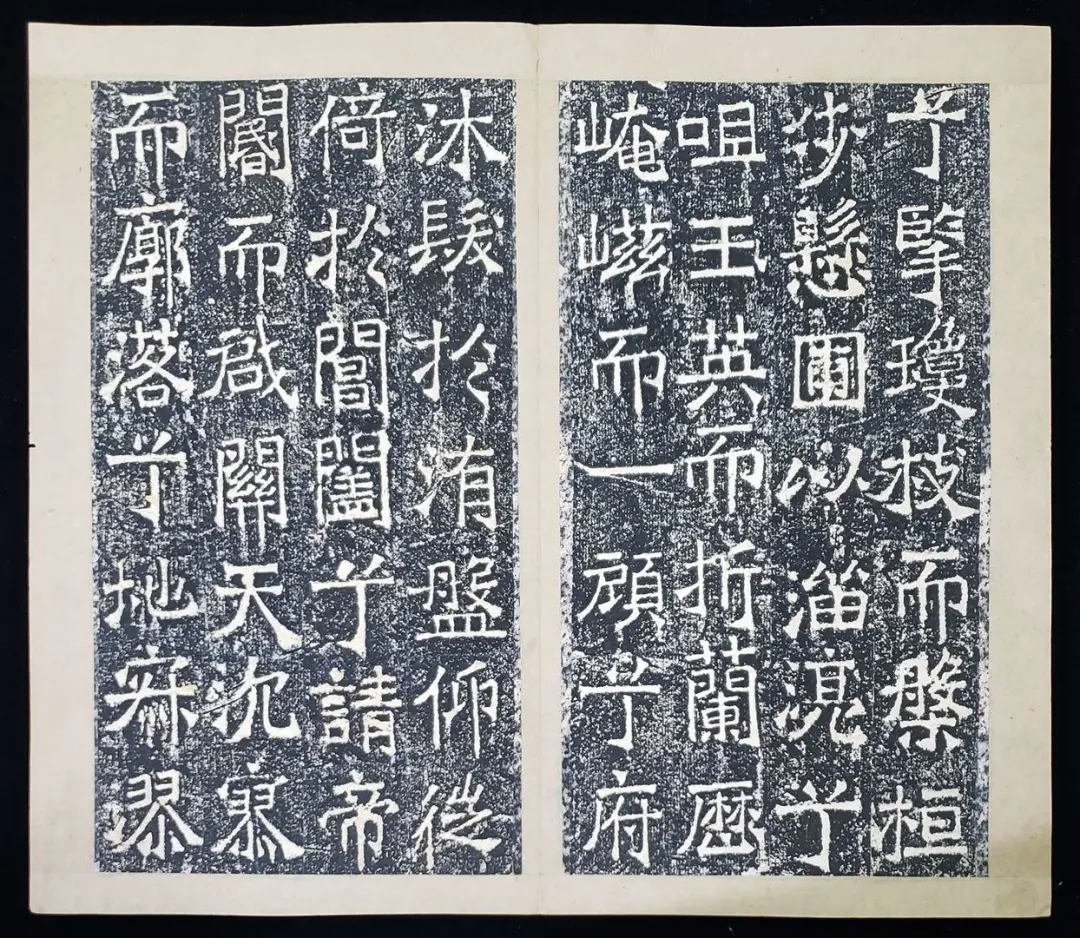 兮擥瓊枝而槃桓
步懸圃以淄湸兮
咀玉英而折蘭歷
崦嵫而一顧兮府
沐髮於洧盤仰從
倚於閶闔兮請帝
閽而啟關天沉寥
而廓落兮地寂漻